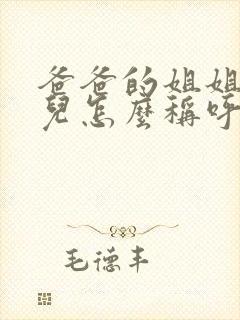 爸爸的姐姐
兒怎麼稱呼
毛德丰